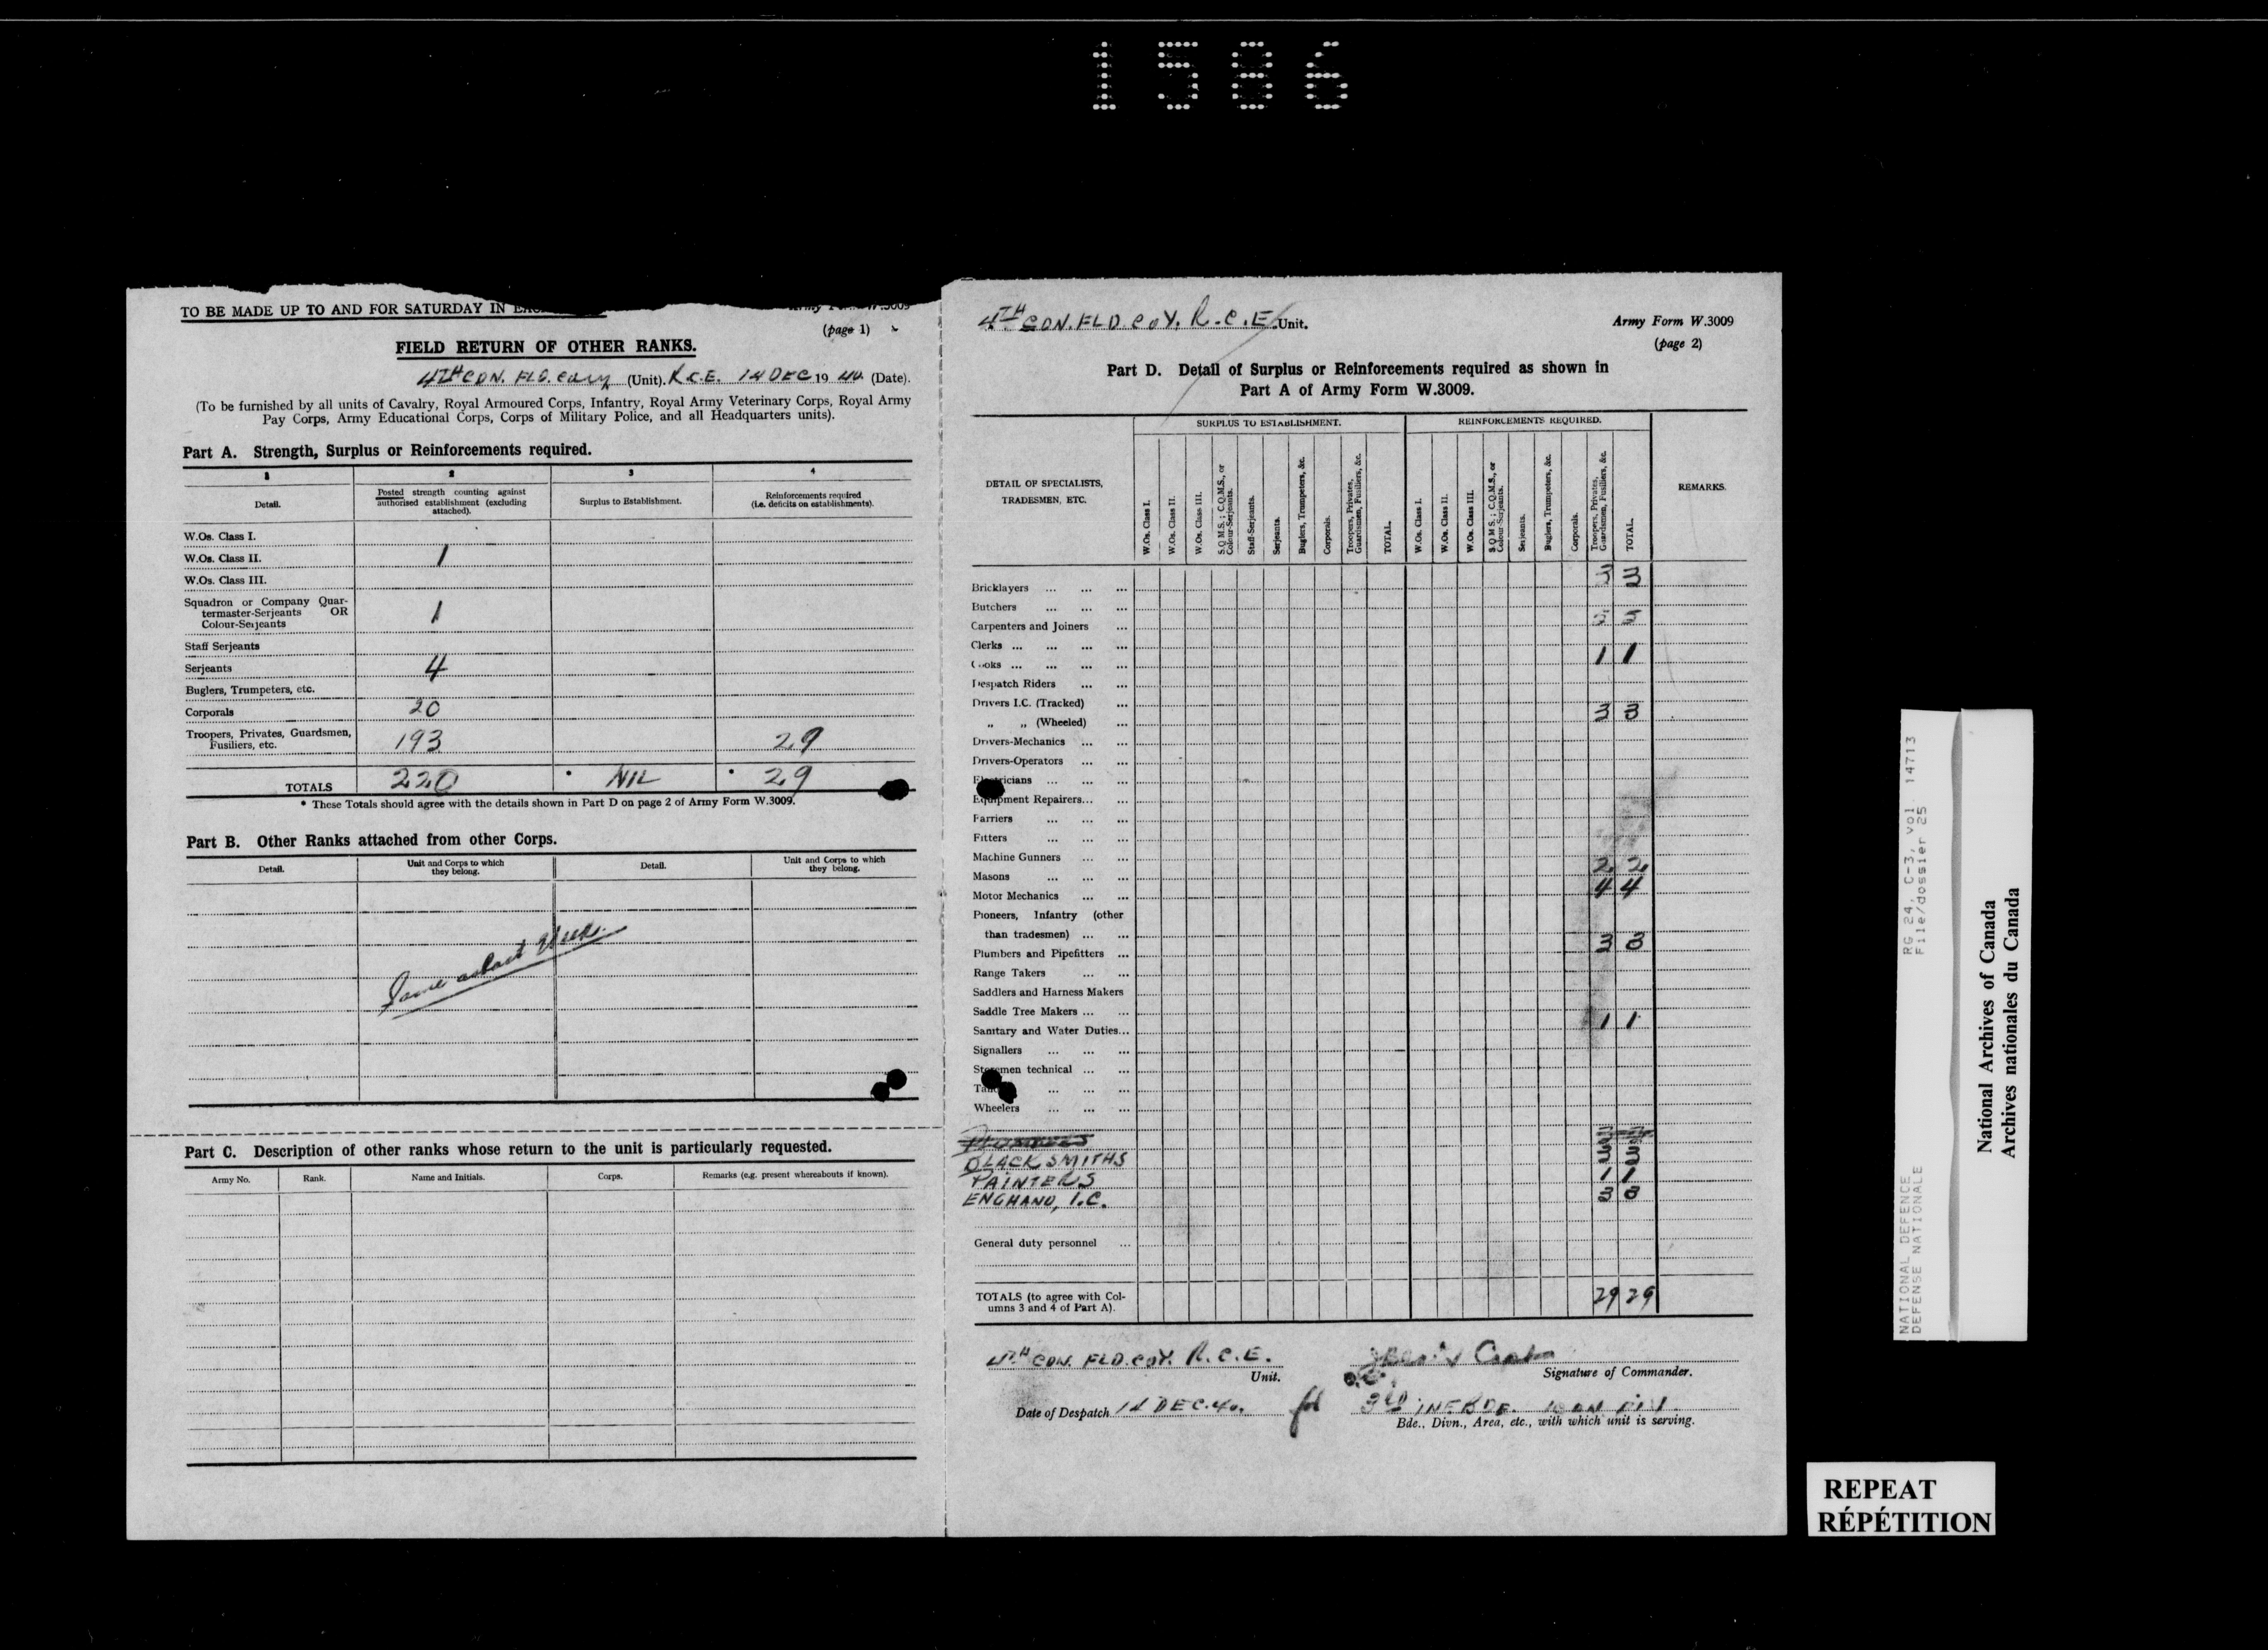 1586
TO BE MADE UP TO AND FOR SATURDAY IN
(page 1)
FIELD RETURN OF OTHER RANKS.
4TH CDN. FLD. Coy (Unit). R.C.E. 14 DEC 19 40 (Date).
(To be furnished by all units of Cavalry, Royal Armoured Corps, Infantry, Royal Army Veterinary Corps, Royal Army
Pay Corps, Army Educational Corps, Corps of Military Police, and all Headquarters units).
Part A. Strength, Surplus or Reinforcements required.
1 2 3 4
Detail. Posted strength counting against authorised establishment (excluding attached). Surplus to Establishment. Reinforcements required (i.e. deficits on establishments).
W.Os. Class I.
W.Os. Class II. 1
W.Os. Class III.
Squadron or Company Quar-
termaster-Serjeants OR
Colour-Serjeants 1
Staff Serjeants
Serjeants 4
Buglers, Trumpeters, etc.
Corporals 20
Troopers, Privates, Guardsmen,
Fusiliers, etc. 193 29
TOTALS 220 * NIL * 29
* These Totals should agree with the details shown in Part D on page 2 of Army Form W.3009.
Part B. Other Ranks attached from other Corps.
Detail. Unit and Corps to which they belong. Detail. Unit and Corps to which they belong.
Same as last Week
Part C. Description of other ranks whose return to the unit is particularly requested.
Army No. Rank. Name and Initials. Corps. Remarks (e.g. present whereabouts if known).
4TH CDN. FLD. COY. R.C.E. Unit.
Army Form W.3009
(page 2)
Part D. Detail of Surplus or Reinforcements required as shown in
Part A of Army Form W.3009.
DETAIL OF SPECIALISTS, TRADESMEN, ETC.
SURPLUS TO ESTABLISHMENT. REINFORCEMENTS REQUIRED. REMARKS.
W.Os. Class I. W.Os. Class II. W.Os. Class III. S.Q.M.S.; C.Q.M.S., or Colour-Serjeants. Staff-Serjeants. Serjeants. Buglers, Trumpeters, &c. Corporals. Troopers, Privates, Guardsmen, Fusiliers, &c. TOTAL.
W.Os. Class I. W.Os. Class II. W.Os. Class III. S.Q.M.S.; C.Q.M.S., or Colour-Serjeants. Serjeants. Buglers, Trumpeters, &c. Corporals. Troopers, Privates, Guardsmen, Fusiliers, &c. TOTAL.
Bricklayers ... ... ... 3 3
Butchers ... ... ...
Carpenters and Joiners ... 5 5
Clerks ... ... ... ...
Cooks ... ... ... ... 1 1
Despatch Riders ... ...
Drivers I.C. (Tracked) ...
" " (Wheeled) ... 3 3
Drivers-Mechanics ... ...
Drivers-Operators ... ...
Electricians ... ... ...
Equipment Repairers... ...
Farriers ... ... ...
Fitters ... ... ...
Machine Gunners ... ...
Masons ... ... ... 2 2
Motor Mechanics ... ... 4 4
Pioneers, Infantry (other
than tradesmen) ... ...
Plumbers and Pipefitters ... 3 3
Range Takers ... ...
Saddlers and Harness Makers
Saddle Tree Makers ... ...
Sanitary and Water Duties... 1 1
Signallers ... ... ...
Storemen technical ... ...
Wheelers ... ... ...
BLACKSMITHS 3 3
PAINTERS 1 1
ENGHAND, I.C. 3 3
General duty personnel ...
TOTALS (to agree with Col-
umns 3 and 4 of Part A). 29 29
4TH CDN. FLD. COY. R.C.E.
Unit.
Capt
Signature of Commander.
Date of Despatch 14 DEC. 40.
3RD INF BDE. 1 CAN DIV.
Bde., Divn., Area, etc., with which unit is serving.
NATIONAL DEFENCE RG 24, C-3, vol 14713
DEFENSE NATIONALE File/dossier 25
National Archives of Canada
Archives nationales du Canada
REPEAT
RÉPÉTITION